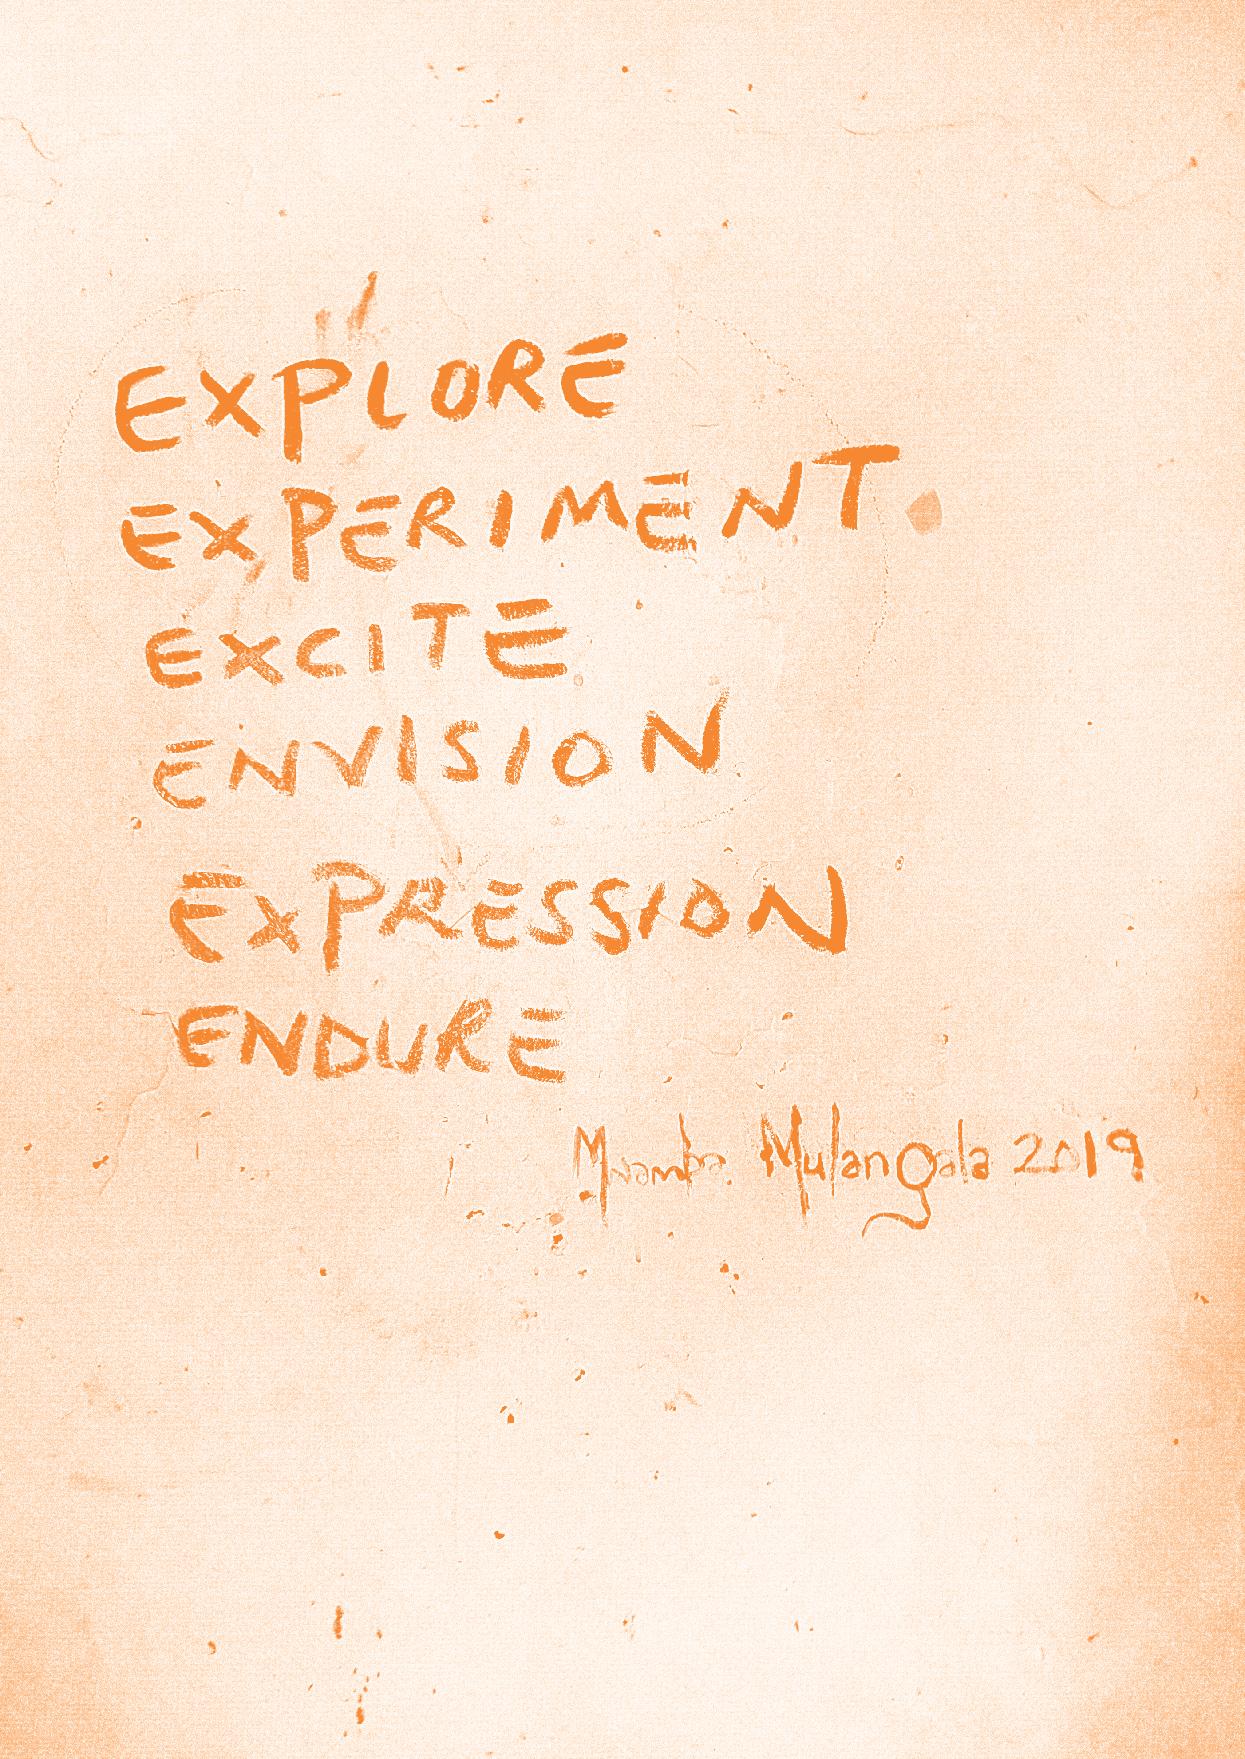 EXPLORE
EXPERIMENT.
EXCITE
ENVISION
EXPRESSION
ENDURE
Mwamba Mulangala 2019